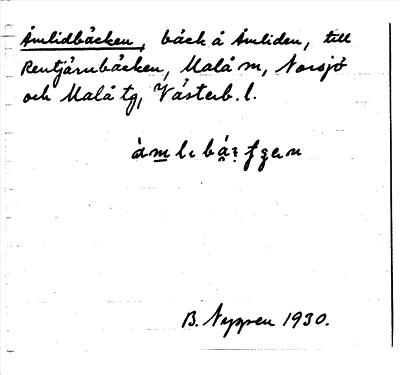 Åmlidbäcken, bäck å Åmliden, till
Rentjärnbäcken, Malå m, Norsjö
och Malå tg, Västerb. l.
B. Nyppen 1930.